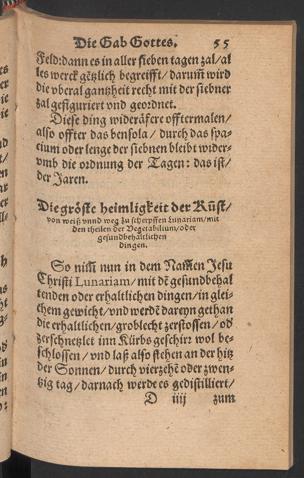 Die Gab Gottes. 55
Feld: dann es in aller sieben tagen zal/al
les werck gẽtzlich begreifft/ darum̃ wird
die vberal gantzheit recht mit der siebner
zal gefiguriert vnd geordnet.
Diese ding wideräfere offtermalen/
also offter das bensola/ durch das spa-
cium oder lenge der siebnen bleibt wider-
vmb die ordnung der Tagen: das ist/
der Jaren.
Die gröste heimligkeit der Rüst/
von weiß vnnd weg zu scherpffen Lunariam/mit
den theilen der Vegetabilium/oder
gesundbehaltlichen
dingen.
So nim̃ nun in dem Nam̃en Jesu
Christi Lunariam/ mit dẽ gesundbehal
tenden oder erhaltlichen dingen/in glei-
chem gewicht/vnd werdẽ dareyn gethan
die erhaltlichen/groblecht zerstossen/ od̕
zerschnetzlet inn Kürbs geschir: wol be-
schlossen/ vnd laß also stehen an der hitz
der Sonnen/ durch vierzehẽ oder zwen-
tzig tag/darnach werde es gedistilliert/
D iiij zum